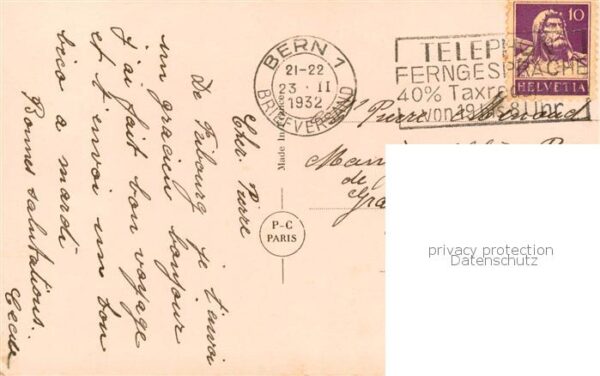 Cher Pierre
De Fribourg je t'envoi
un gracieu bonjour
J'ai fait bon voyage
et t'envoi un bon
bico a mardi
Bonnes salutations.
Cecile
BERN 1
21-22
23 · II
1932
BRIEFVERSAND
TELEPH
FERNGESPRÄCHE
40% Taxre
von 19 8 Uhr
10
HELVETIA
Pierre
de
Gra
Made in
P-C
PARIS
privacy protection
Datenschutz